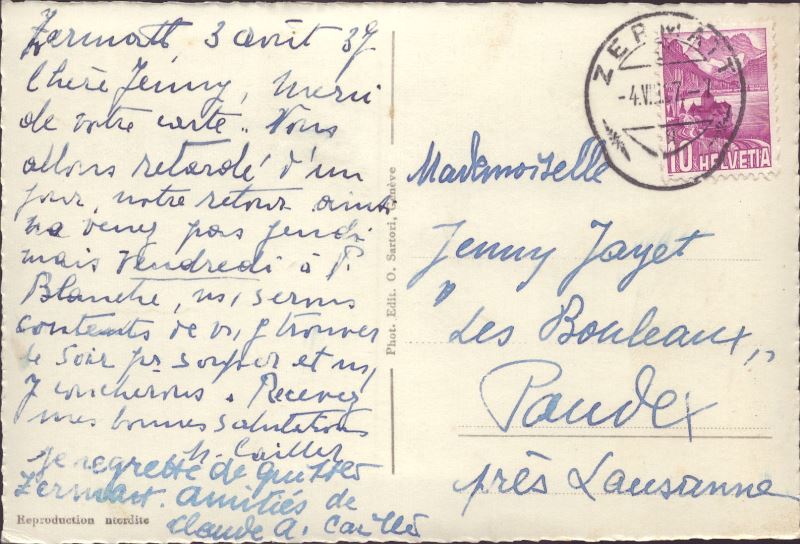 Zermatt, 3 août 37
Chère Jenny, merci
de votre carte. Nous
allons retardé d'un
jour, notre retour ainsi
ne venez pas jeudi
mais vendredi à P.
Blanche, ns, serons
contents de vs, y trouver
le soir pr souper et ns,
y coucherons. Recevez
mes bonnes salutations
Cailler
je regrette de quitter
Zermatt. amitiés de
Claude A. Cailler
Reproduction interdite
Phot. Edit. O. Sartori, Genève
ZERMATT
10 HELVETIA
Mademoiselle
Jenny Jayet
"Les Bouleaux"
Paudex
près Lausanne